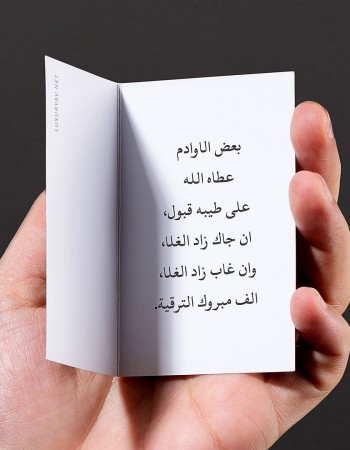 بعض الاوادم
عطاه الله
على طيبه قبول,
ان جاك زاد الغلا,
وان غاب زاد الغلا,
الف مبروك الترقية.